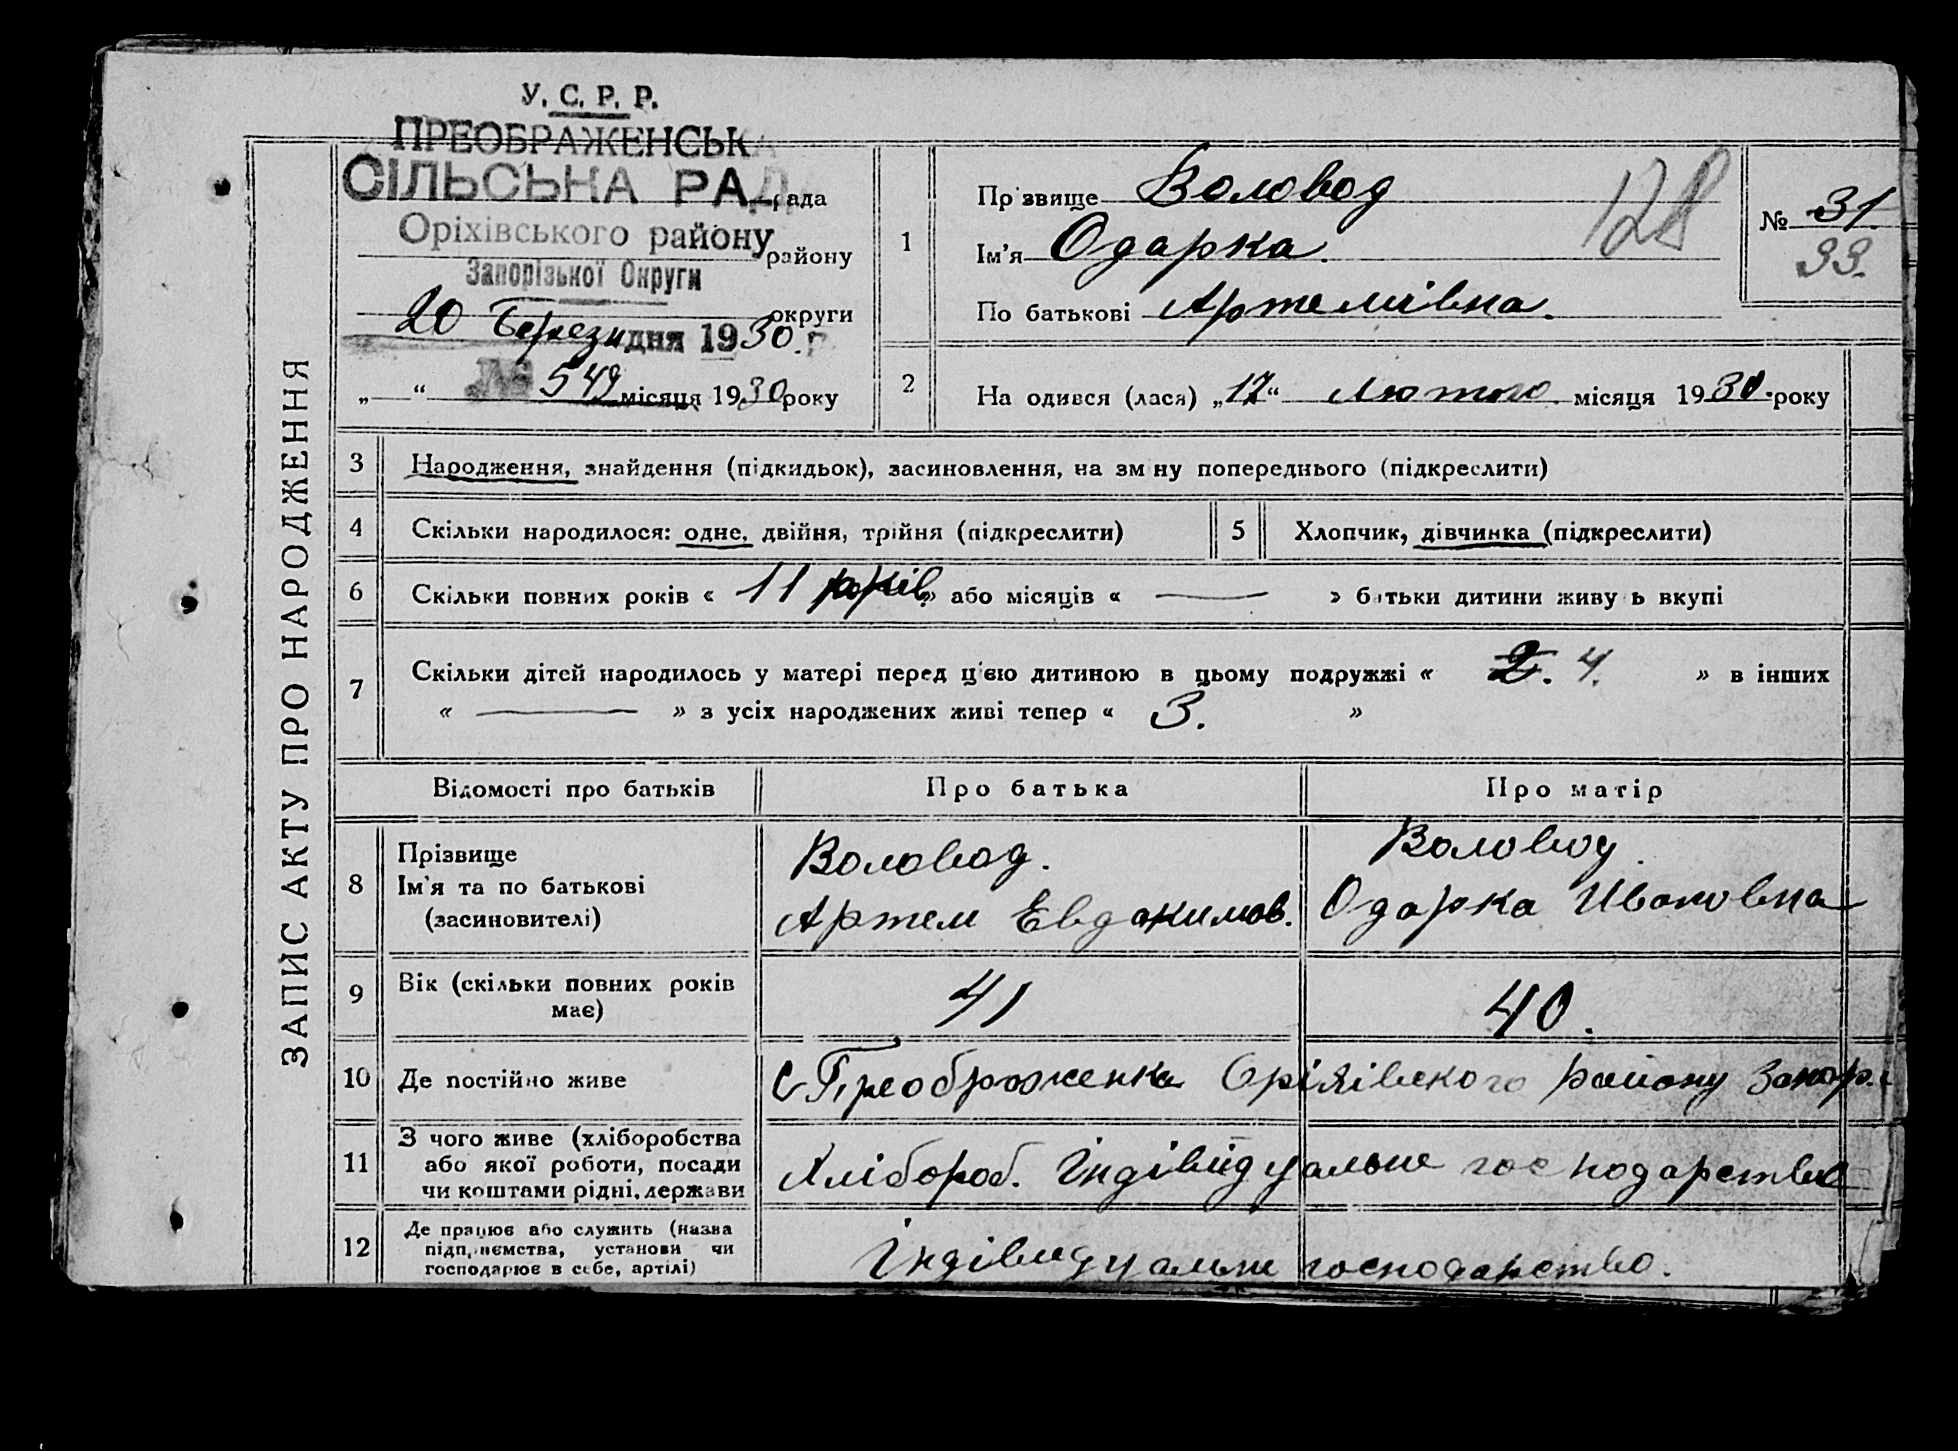 У. С. Р. Р.
ПРЕОБРАЖЕНСЬКА
СІЛЬСЬКА РАДА рада
Оріхівського району району
Запорізької Округи
округи
20 Березн дня 1930 г.
„ “ № 549 місяця 1930 року
ЗАПИС АКТУ ПРО НАРОДЖЕННЯ
1
Прізвище Воловод
Ім'я Одарка.
По батькові Артемівна.
128
№ 31.
33.
2
На одився (лася) „17“ Лютого місяця 1930. року
3 Народження, знайдення (підкидьок), засиновлення, на зм ну попереднього (підкреслити)
4 Скільки народилося: одне, двійня, трійня (підкреслити) 5 Хлопчик, дівчинка (підкреслити)
6 Скільки повних років « 11 років » або місяців « — » батьки дитини живу ь вкупі
7 Скільки дітей народилось у матері перед цією дитиною в цьому подружжі « 2. 4. » в інших
« — » з усіх народжених живі тепер « 3. »
Відомості про батьків Про батька Про матір
8 Прізвище
Ім'я та по батькові
(засиновителі)
Воловод.
Артем Евдокимов.
Воловод.
Одарка Ивановна
9 Вік (скільки повних років
має)
41
40.
10 Де постійно живе С Преображенка Оріхівского району Запор.
11 З чого живе (хліборобства
або якої роботи, посади
чи коштами рідні, держави
Хлібороб. Індівідуальне господарство
12 Де працює або служить (назва
підприємства, установи чи
господарює в себе, артілі)
Індівидуальне господарство.